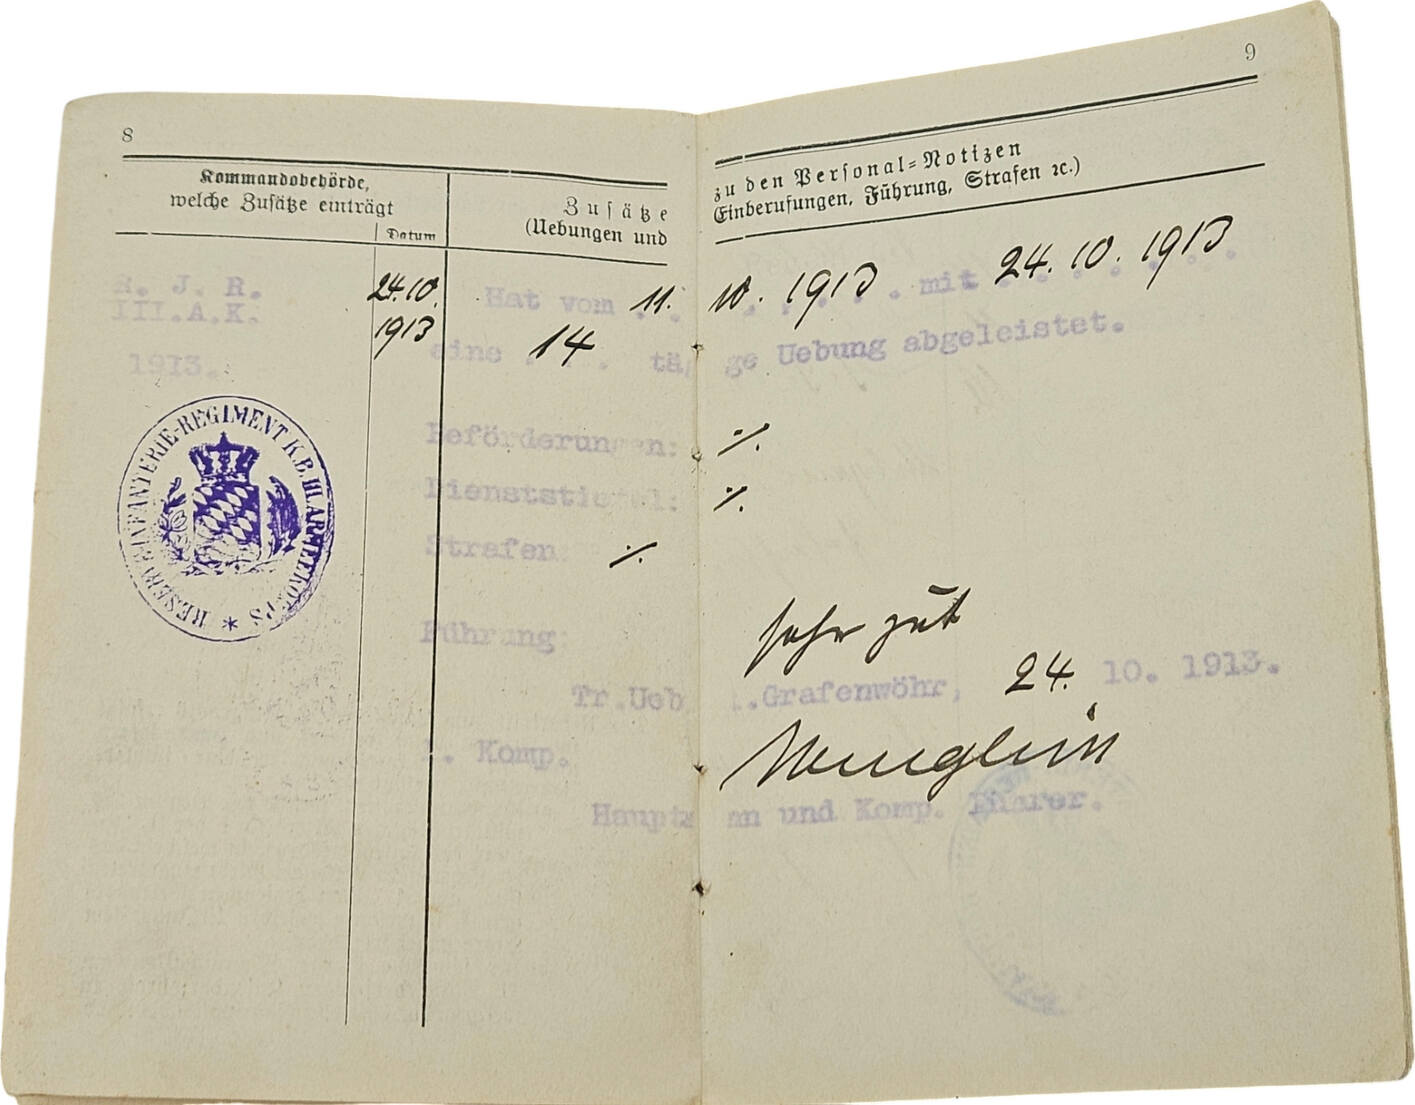 8
Kommandobehörde,
welche Zusätze einträgt
Datum
Zusätze
(Uebungen und
R. J. R.
III.A.K.
1913.
24.10.
1913
Hat vom . . 11.
eine . 14 . . tä
Beförderungen:
Dienststiefel:
Strafen: ·/.
Führung:
Tr.Ueb
1. Komp.
Hauptm
RESERVE-INFANTERIE-REGIMENT K.B. III. ARMEEKORPS *
9
zu den Personal=Notizen
Einberufungen, Führung, Strafen ꝛc.)
10. 1913 . mit 24. 10. 1913
ge Uebung abgeleistet.
·/.
·/.
sehr gut
.Grafenwöhr, 24. 10. 1913.
an und Komp. Führer.